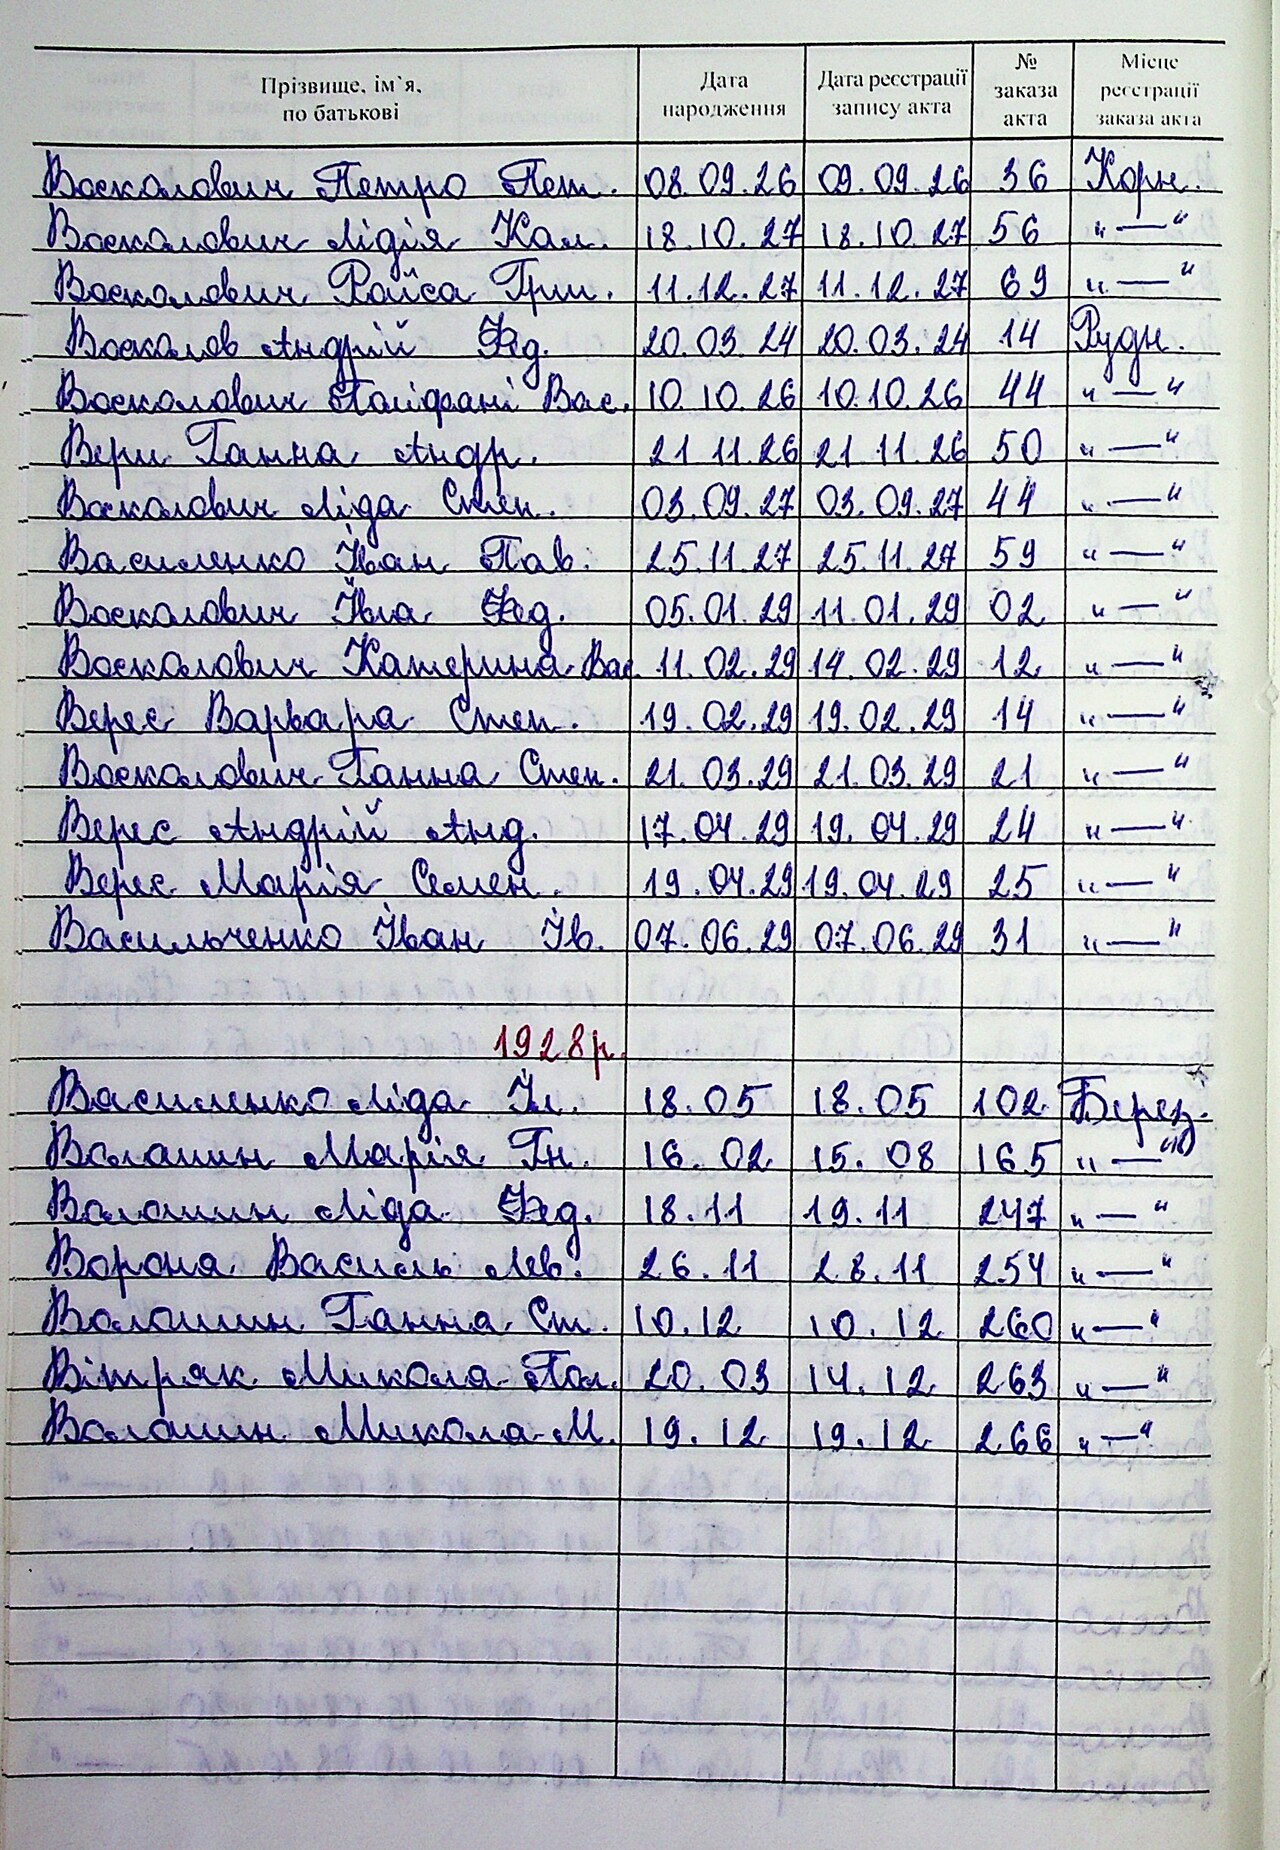 Прізвище, ім`я, по батькові Дата народження Дата реєстрації запису акта № заказа акта Місце реєстрації заказа акта
Воскалович Петро Пет. 08.09.26 09.09.26 36 Корн.
Воскалович Лідія Кал. 18.10.27 18.10.27 56 "—"
Воскалович Раїса Гри. 11.12.27 11.12.27 69 "—"
Воскалов Андрій Фед. 20.03.24 20.03.24 14 Рудн.
Воскалович Вас. 10.10.26 10.10.26 44 "—"
Вери Ганна Андр. 21.11.26 21.11.26 50 "—"
Воскалович Ліда Степ. 03.09.27 03.09.27 44 "—"
Василенко Іван Пав. 25.11.27 25.11.27 59 "—"
Воскалович Фед. 05.01.29 11.01.29 02 "—"
Воскалович Катерина Вас. 11.02.29 14.02.29 12 "—"
Верес Варвара Степ. 19.02.29 19.02.29 14 "—"
Воскалович Ганна Степ. 21.03.29 21.03.29 21 "—"
Верес Андрій Анд. 17.04.29 19.04.29 24 "—"
Верес Марія Семен. 19.04.29 19.04.29 25 "—"
Васильченко Іван Ів. 07.06.29 07.06.29 31 "—"
1928р.
Василенко Ліда Іл. 18.05 18.05 102 Берез.
Волошин Марія Гн. 16.02 15.08 165 "—"
Волошин Ліда Фед. 18.11 19.11 247 "—"
Ворона Василь Лев. 26.11 28.11 254 "—"
Волошин Ганна Ст. 10.12 10.12 260 "—"
Вітряк Микола Пол. 20.03 14.12 263 "—"
Волошин Микола М. 19.12 19.12 266 "—"